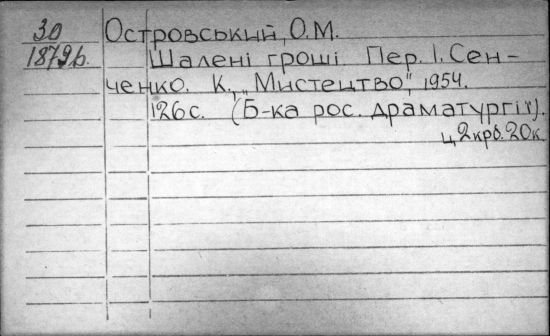 30 Островський, О.М.
1879 в. Шалені гроші Пер. І. Сен-
ченко. К., „Мистецтво", 1954.
126 с. (Б-ка рос. драматургії).
ц 2 крб. 20 к.